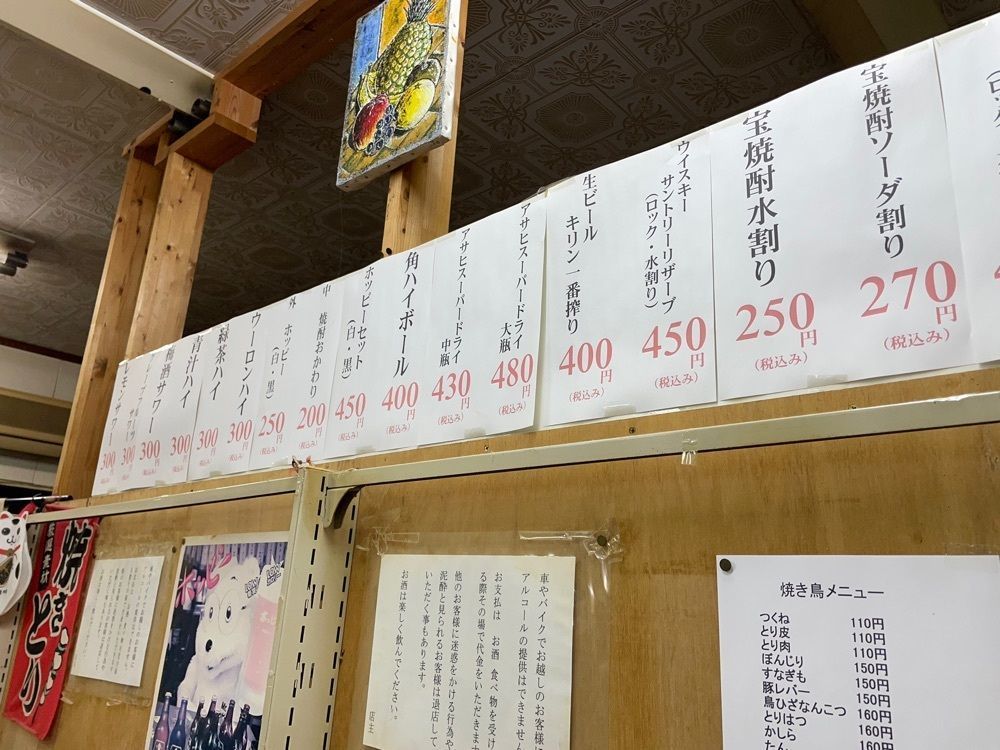 宝焼酎ソーダ割り
270円
(税込み)
宝焼酎水割り
250円
(税込み)
ウイスキー
サントリーリザーブ
(ロック・水割り)
450円
(税込み)
生ビール
キリン一番搾り
400円
(税込み)
アサヒスーパードライ
大瓶
480円
(税込み)
アサヒスーパードライ
中瓶
430円
(税込み)
角ハイボール
400円
(税込み)
ホッピーセット
(白・黒)
450円
(税込み)
中
焼酎おかわり
200円
(税込み)
外
ホッピー
(白・黒)
250円
(税込み)
ウーロンハイ
300円
(税込み)
緑茶ハイ
300円
(税込み)
青汁ハイ
300円
(税込み)
梅酒サワー
300円
(税込み)
300円
(税込み)
300円
レモンサワー
300円
(税込み)
焼き鳥メニュー
つくね 110円
とり皮 110円
とり肉 110円
ぼんじり 150円
すなぎも 150円
豚レバー 150円
鳥ひざなんこつ 160円
とりはつ 160円
かしら 160円
たん
車やバイクでお越しのお客様に
アルコールの提供はできません
お支払は お酒 食べ物を受け
る際その場で代金をいただきます
他のお客様に迷惑をかける行為や
泥酔と見られるお客様は退店して
いただく事もあります。
お酒は楽しく飲んでください。
店主
ホッピー
焼き
とり